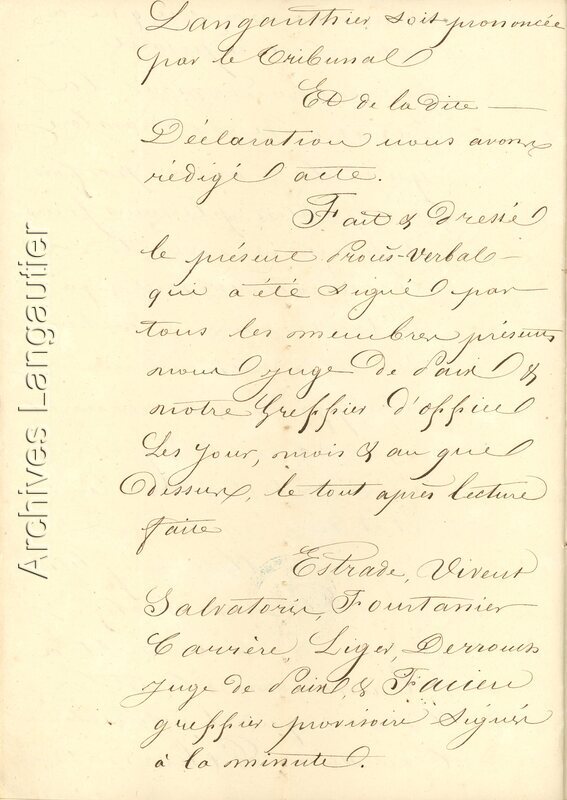 Langauthier soit prononcée
par le Tribunal
Et de la dite
Déclaration nous avons
rédigé acte.
Fait & Dressé
le présent Procès-Verbal
qui a été signé par
tous les membres présents
nous Juge de Paix &
notre Greffier d'office
Les Jour, mois & an que
dessus, le tout après lecture
faite
Estrade, Vivent
Salvatoris, Fourtanier
Carrière, Liger,
Juge de Paix, &
greffier provisoire signés
à la minute.
Archives Langautier